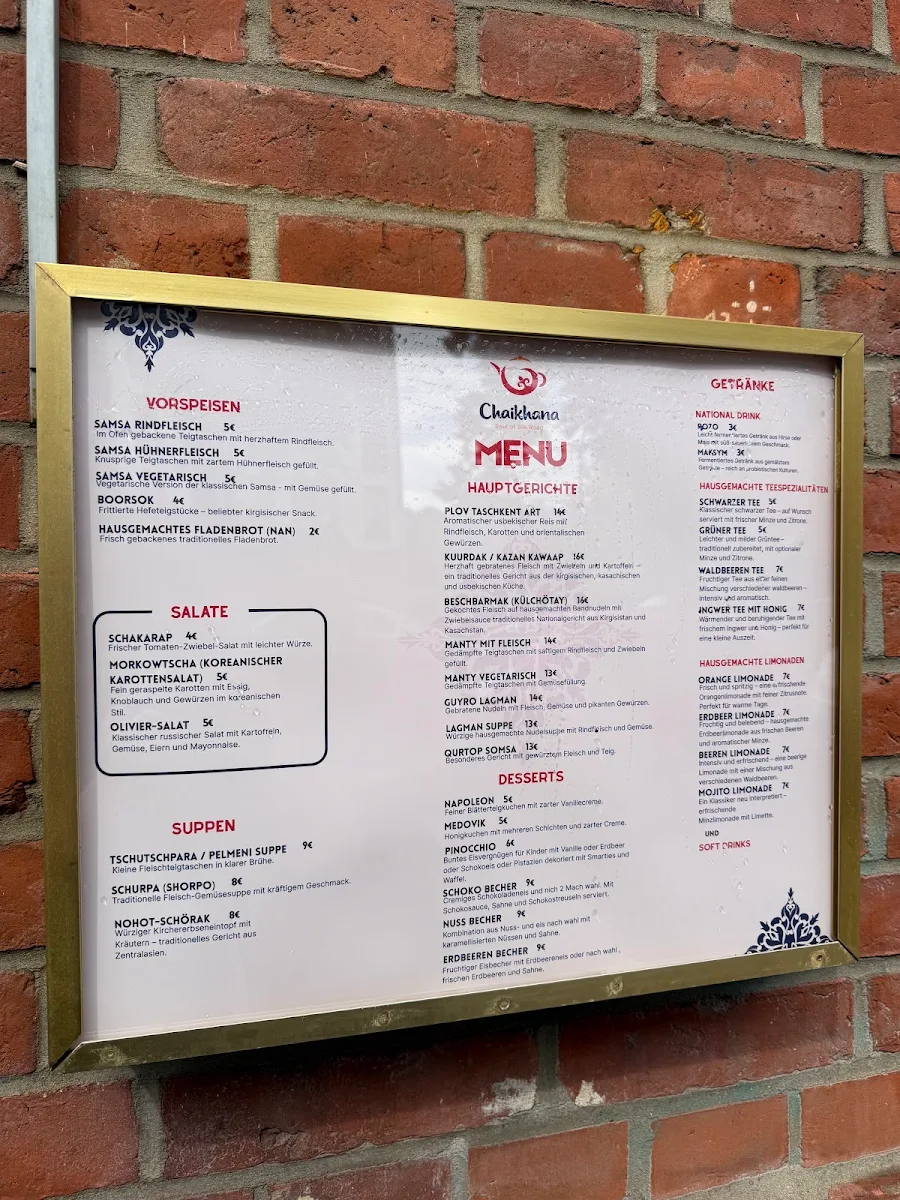 VORSPEISEN
SAMSA RINDFLEISCH 5€
Im Ofen gebackene Teigtaschen mit herzhaftem Rindfleisch.
SAMSA HÜHNERFLEISCH 5€
Knusprige Teigtaschen mit zartem Hühnerfleisch gefüllt.
SAMSA VEGETARISCH 5€
Vegetarische Version der klassischen Samsa - mit Gemüse gefüllt.
BOORSOK 4€
Frittierte Hefeteigstücke – beliebter kirgisischer Snack.
HAUSGEMACHTES FLADENBROT (NAN) 2€
Frisch gebackenes traditionelles Fladenbrot.
SALATE
SCHAKARAP 4€
Frischer Tomaten-Zwiebel-Salat mit leichter Würze.
MORKOWTSCHA (KOREANISCHER
KAROTTENSALAT) 5€
Fein geraspelte Karotten mit Essig,
Knoblauch und Gewürzen im koreanischen
Stil.
OLIVIER-SALAT 5€
Klassischer russischer Salat mit Kartoffeln,
Gemüse, Eiern und Mayonnaise.
SUPPEN
TSCHUTSCHPARA / PELMENI SUPPE 9€
Kleine Fleischteigtaschen in klarer Brühe.
SCHURPA (SHORPO) 8€
Traditionelle Fleisch-Gemüsesuppe mit kräftigem Geschmack.
NOHOT-SCHÖRAK 8€
Würziger Kirchererbseneintopf mit
Kräutern – traditionelles Gericht aus
Zentralasien.
Chaikhana
Soul of Silk Road
MENU
HAUPTGERICHTE
PLOV TASCHKENT ART 14€
Aromatischer usbekischer Reis mit
Rindfleisch, Karotten und orientalischen
Gewürzen.
KUURDAK / KAZAN KAWAAP 16€
Herzhaft gebratenes Fleisch mit Zwiebeln und Kartoffeln –
ein traditionelles Gericht aus der kirgisischen, kasachischen
und usbekischen Küche.
BESCHBARMAK (KÜLCHÖTAY) 16€
Gekochtes Fleisch auf hausgemachten Bandnudeln mit
Zwiebelsauce traditionelles Nationalgericht aus Kirgisistan und
Kasachstan.
MANTY MIT FLEISCH 14€
Gedämpfte Teigtaschen mit saftigem Rindfleisch und Zwiebeln
gefüllt.
MANTY VEGETARISCH 13€
Gedämpfte Teigtaschen mit Gemüsefüllung.
GUYRO LAGMAN 14€
Gebratene Nudeln mit Fleisch, Gemüse und pikanten Gewürzen.
LAGMAN SUPPE 13€
Würzige hausgemachte Nudelsuppe mit Rindfleisch und Gemüse.
QURTOP SOMSA 13€
Besonderes Gericht mit gewürztem Fleisch und Teig.
DESSERTS
NAPOLEON 5€
Feiner Blätterteigkuchen mit zarter Vanillecreme.
MEDOVIK 5€
Honigkuchen mit mehreren Schichten und zarter Creme.
PINOCCHIO 6€
Buntes Eisvergnügen für Kinder mit Vanille oder Erdbeer
oder Schokoeis oder Pistazien dekoriert mit Smarties und
Waffel.
SCHOKO BECHER 9€
Cremiges Schokoladeneis und nich 2 Mach wahl. Mit
Schokosauce, Sahne und Schokostreuseln serviert.
NUSS BECHER 9€
Kombination aus Nuss- und eis nach wahl mit
karamellisierten Nüssen und Sahne.
ERDBEEREN BECHER 9€
Fruchtiger Eisbecher mit Erdbeereneis oder nach wahl,
frischen Erdbeeren und Sahne.
GETRÄNKE
NATIONAL DRINK
BOZO 3€
Leicht fermentiertes Getränk aus Hirse oder
Mais mit süß-sauerlichem Geschmack.
MAKSYM 3€
Fermentiertes Getränk aus gemälztem
Getreide – reich an probiotischen Kulturen.
HAUSGEMACHTE TEESPEZIALITÄTEN
SCHWARZER TEE 5€
Klassischer schwarzer Tee – auf Wunsch
serviert mit frischer Minze und Zitrone.
GRÜNER TEE 5€
Leichter und milder Grüntee –
traditionell zubereitet, mit optionaler
Minze und Zitrone.
WALDBEEREN TEE 7€
Fruchtiger Tee aus einer feinen
Mischung verschiedener waldbeeren –
intensiv und aromatisch.
INGWER TEE MIT HONIG 7€
Wärmender und beruhigender Tee mit
frischem Ingwer und Honig – perfekt für
eine kleine Auszeit.
HAUSGEMACHTE LIMONADEN
ORANGE LIMONADE 7€
Frisch und spritzig – eine erfrischende
Orangenlimonade mit feiner Zitrusnote.
Perfekt für warme Tage.
ERDBEER LIMONADE 7€
Fruchtig und belebend – hausgemachte
Erdbeerlimonade aus frischen Beeren
und aromatischer Minze.
BEEREN LIMONADE 7€
Intensiv und erfrischend – eine beerige
Limonade mit einer Mischung aus
verschiedenen Waldbeeren.
MOJITO LIMONADE 7€
Ein Klassiker neu interpretiert –
erfrischende
Minzlimonade mit Limette.
UND
SOFT DRINKS